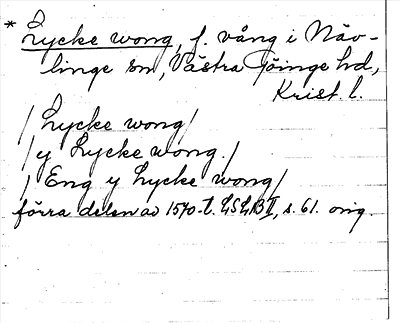 * Lycke wong, f. vång i Näv-
linge sn, Västra Göinge hd,
Krist. l.
/ Lycke wong /
/ y Lycke wong. /
/ Eng y Lycke wong /
förra delen av 1570-t. LSLB II, s. 61. orig.